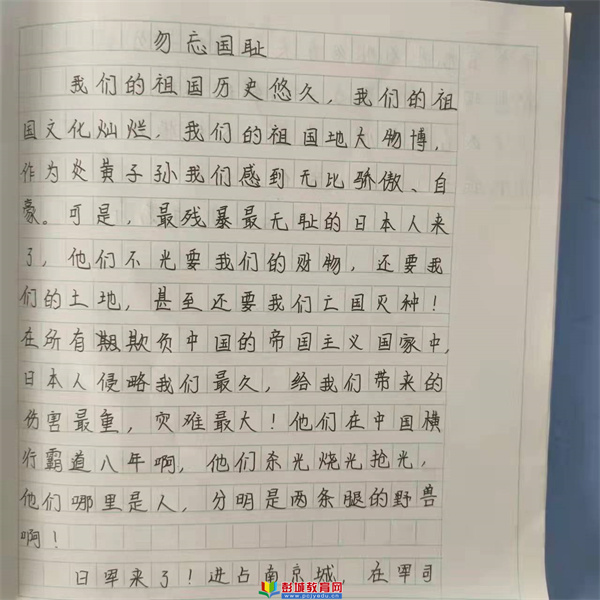 勿忘国耻
我们的祖国历史悠久，我们的祖
国文化灿烂，我们的祖国地大物博，
作为炎黄子孙我们感到无比骄傲、自
豪。可是，最残暴最无耻的日本人来
了，他们不光要我们的财物，还要我
们的土地，甚至还要我们亡国灭种！
在所有欺负中国的帝国主义国家中，
日本人侵略我们最久，给我们带来的
伤害最重，灾难最大！他们在中国横
行霸道八年啊，他们杀光烧光抢光，
他们哪里是人，分明是两条腿的野兽
啊！
日军来了！进占南京城，在军司
彭城教育网
www.pcjyedu.cn